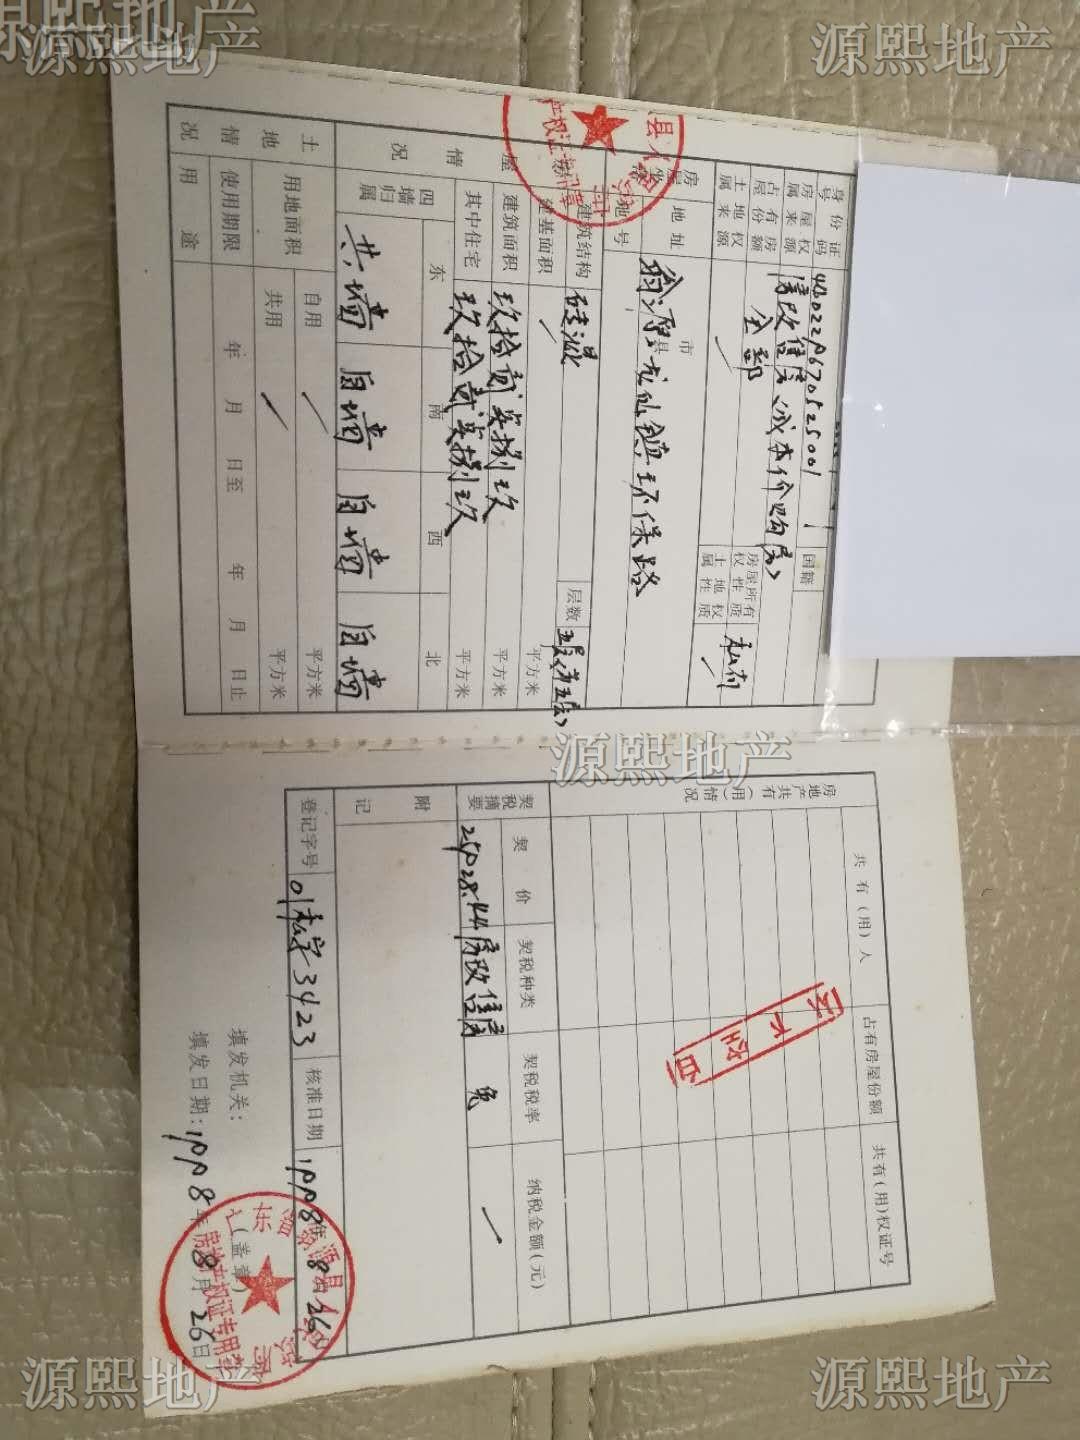 源熙地产
源熙地产
源熙地产
身份证号码
国籍
房屋权属来源
房改住房(成本价购房)
占有房屋份额
全部
房屋所有权性质
私有
土地权属来源
土地权属性质
房屋坐落
地址
翁源县龙仙镇环保路
市
县
地号
房屋情况
建筑结构
砖混
层数
五层(第五层)
建基面积
平方米
建筑面积
玖拾贰点捌玖
平方米
其中住宅
玖拾贰点捌玖
平方米
四墙归属
东
南
西
北
共墙
自墙
自墙
自墙
土地情况
用地面积
自用
平方米
共用
平方米
使用期限
年 月 日至 年 月 日止
用途
源熙地产
房地产共有(用)情况
共有(用)人
占有房屋份额
共有(用)权证号
契税摘要
契价
契税种类
契税税率
纳税金额(元)
25928.44
房改住房
免
附记
登记字号
01私字3423
核准日期
1998年8月26日
填发机关:
(盖章)
填发日期:1998年8月26日
广东省翁源县
房地产权证专用章
源熙地产
源熙地产